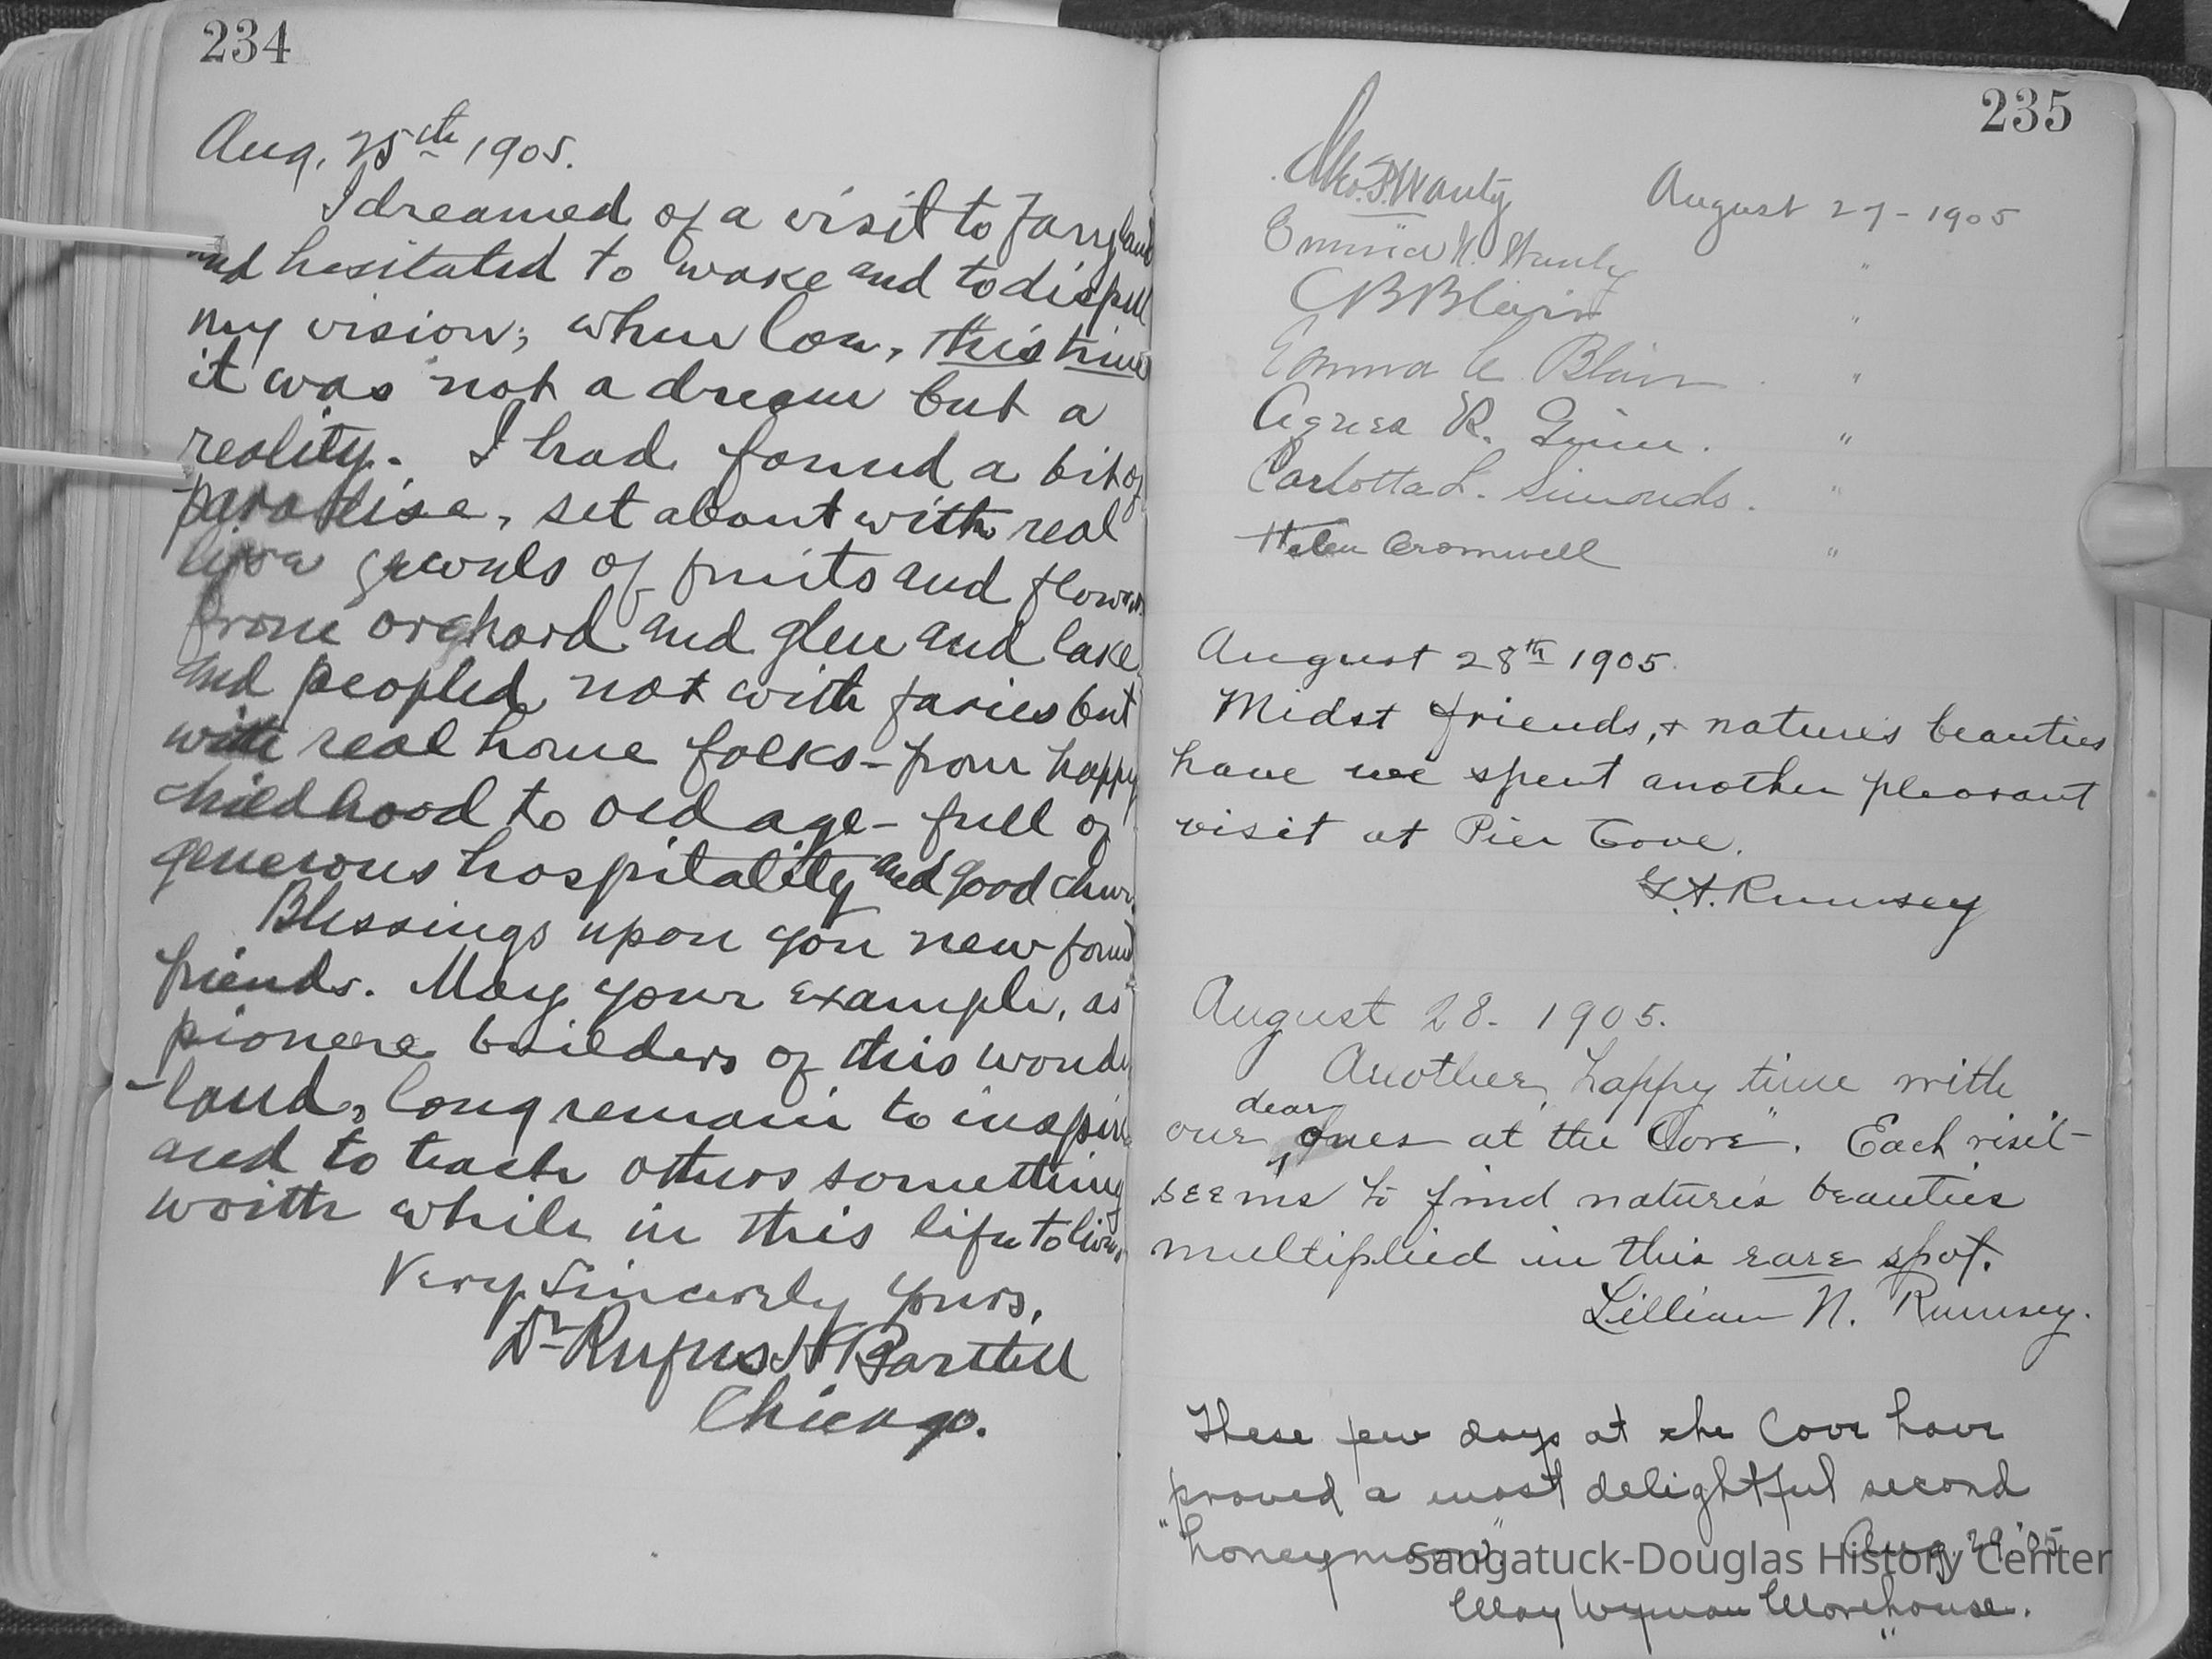 234
Aug. 25th 1905.
I dreamed of a visit to Farryland
and hesitated to wake and to dispell
my vision; when low, this time
it was not a dream but a
reality. I had found a bit of
paradise, set about with real
live jewels of fruits and flowers
from orchard and glen and lake
and peopled not with faries but
with real home folks - from happy
childhood to old age - full of
generous hospitality and good cheer.
Blessings upon you new found
friends. May your example, as
pioneere builders of this wonder
-land, long remain to inspire
and to teach others something
worth while in this life to live.
Very Sincerely Yours,
Dr Rufus H Bartlett
Chicago.
235
Geo. P. Wanty August 27 - 1905
Emma N. Wanty "
C B Blair "
Emma C Blair "
Agnes R. "
Carlotta L. Simonds. "
Helen Cromwell "
August 28th 1905.
Midst friends, + nature's beauties
have we spent another pleasant
visit at Pier Cove.
G. A. Rumsey
August 28. 1905.
Another happy time with
our dear ones at the "Cove". Each visit
seems to find nature's beauties
multiplied in this rare spot.
Lillian N. Rumsey.
These few days at the Cove have
proved a most delightful second
"honeymoon". Aug. 29 '05
May Wyman Morehouse.
Saugatuck-Douglas History Center